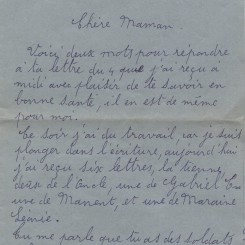 Chère Maman
Voici deux mots pour répondre
à ta lettre du 4 que j'ai reçu à
midi avec plaisir de te savoir en
bonne santé, il en est de même
pour moi.
Ce soir j'ai du travail, car je suis
plongér dans l'écriture, aujourd'hui
j'ai reçu six lettres, la tienne,
deux de l'Encle, une de Gabriel
une de Manent, et une de Maraine
Génie.
Tu me parle que tu as des soldats